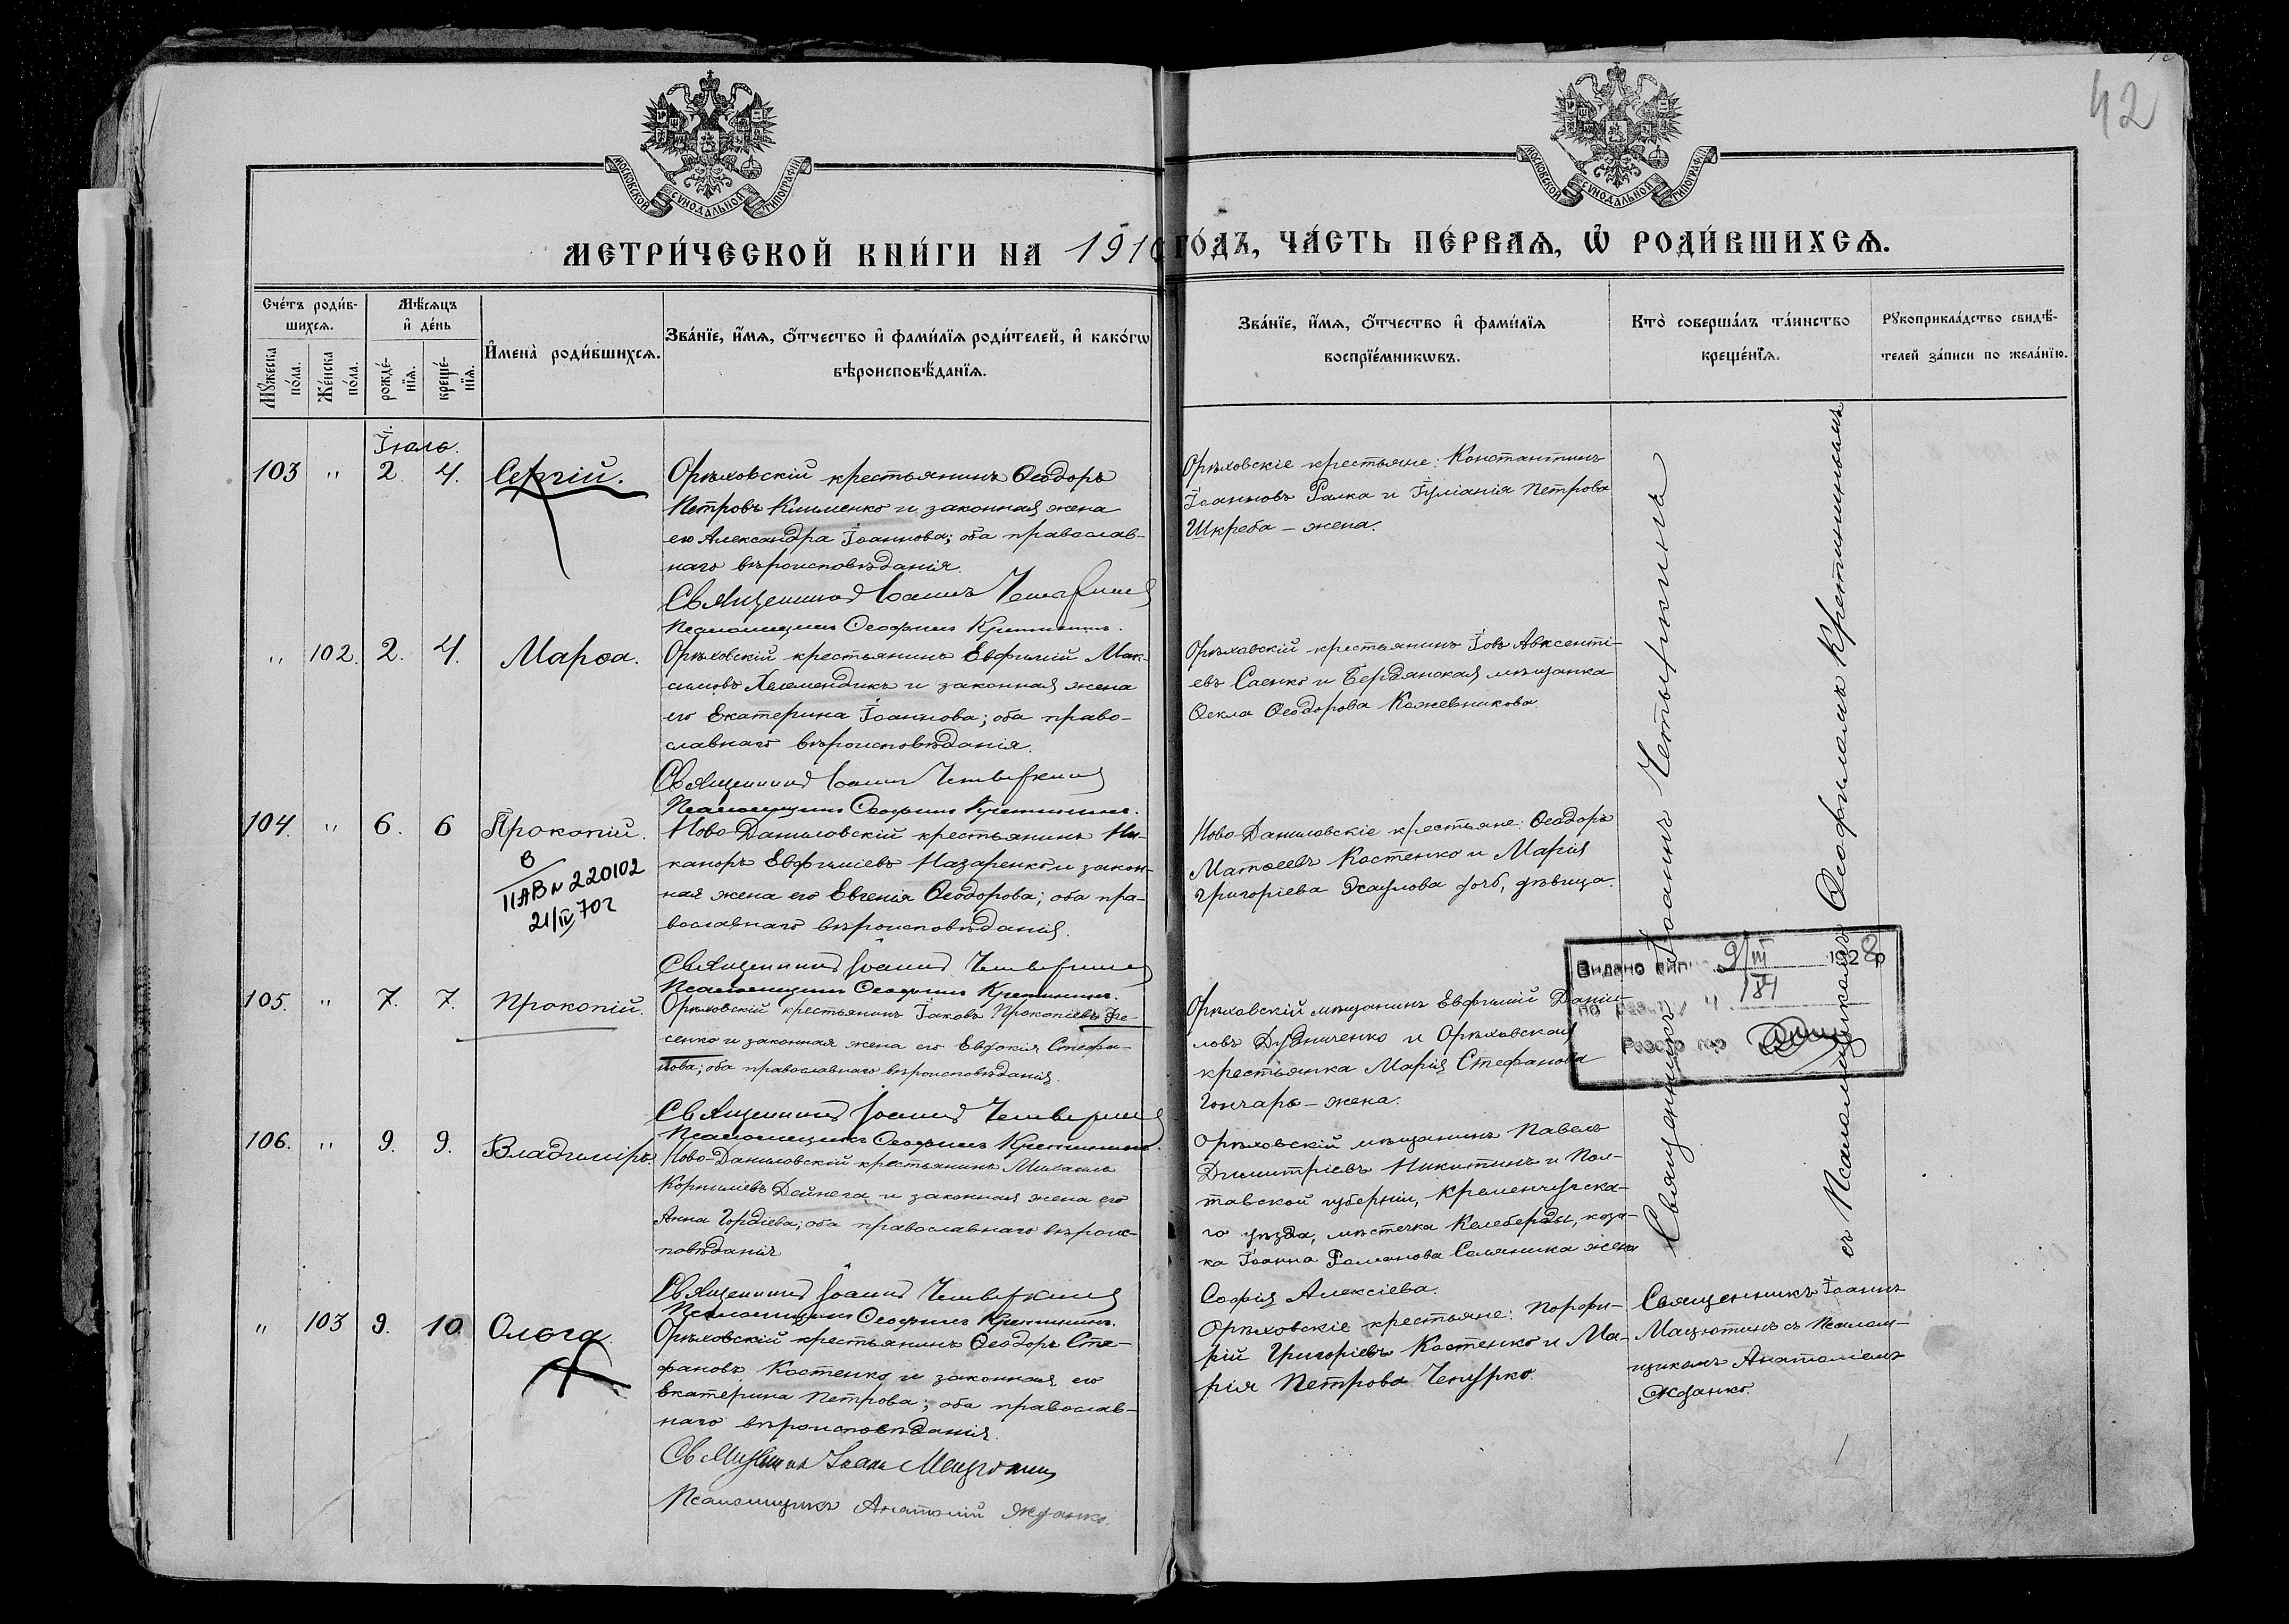 42
МОСКОВСКОЙ СѴНОДАЛЬНОЙ ТИПОГРАФІИ
МОСКОВСКОЙ СѴНОДАЛЬНОЙ ТИПОГРАФІИ
МЕТРИ́ЧЕСКОЙ КНИ́ГИ НА 1910 ГО́ДЪ, ЧА́СТЬ ПЕ́РВАѦ, Ѡ҆ РОДИ́ВШИХСѦ.
Сче́тъ роди́в-
шихсѧ.
Мꙋ́жеска по́ла.
Же́нска по́ла.
Мѣ́сѧцъ
и҆ де́нь
рожде́-
нїѧ.
креще́-
нїѧ.
И҆мена̀ роди́вшихсѧ.
Зва́нїе, и҆́мѧ, ѻ҆́тчество и҆ фами́лїѧ роди́телей, и҆ како́гѡ
вѣроисповѣ́данїѧ.
Зва́нїе, и҆́мѧ, ѻ҆́тчество и҆ фами́лїѧ
воспрїе́мникѡвъ.
Кто̀ соверша́лъ та́инство
креще́нїѧ.
Рꙋкоприкла́дство свидѣ́-
телей за́писи по жела́нїю.
Іюль.
103 " 2. 4. Сергій.
Орѣховскій крестьянинъ Ѳеодоръ
Петровъ Клименко и законная жена
его Александра Іоаннова; оба православ-
наго вѣроисповѣданія.
Священникъ Іоаннъ Четыркинъ
Псаломщикъ Ѳеофилъ Кретининъ.
Орѣховскіе крестьяне: Константинъ
Іоанновъ Ралка и Іуліанія Петрова
Шкреба – жена.
" 102. 2. 4. Марѳа.
Орѣховскій крестьянинъ Евфимій Мак-
симовъ Хелемендикъ и законная жена
его Екатерина Іоаннова; оба право-
славнаго вѣроисповѣданія.
Священникъ Іоаннъ Четыркинъ
Псаломщикъ Ѳеофилъ Кретининъ.
Орѣховскій крестьянинъ Іовъ Авксенті-
евъ Саенко и Бердянская мѣщанка
Ѳекла Ѳеодорова Кожевникова.
104. " 6. 6 Прокопій.
В
II АВ № 220102
21/IV 70 г
Ново-Даниловскій крестьянинъ Ни-
каноръ Евфиміевъ Назаренко и закон-
ная жена его Евгенія Ѳеодорова; оба пра-
вославнаго вѣроисповѣданія.
Священникъ Іоаннъ Четыркинъ
Псаломщикъ Ѳеофилъ Кретининъ.
Ново-Даниловскіе крестьяне: Ѳеодоръ
Матѳеевъ Костенко и Марія
Григоріева дочь, дѣвица.
105. " 7. 7. Прокопій.
Орѣховскій крестьянинъ Іаковъ Прокопіевъ Фе-
сенко и законная жена его Евдокія Стефа-
нова; оба православнаго вѣроисповѣданія.
Священникъ Іоаннъ Четыркинъ
Псаломщикъ Ѳеофилъ Кретининъ.
Орѣховскій мѣщанинъ Евфимій Даніи-
ловъ Дудниченко и Орѣховская
крестьянка Марія Стефанова
Гончаръ – жена.
106. " 9. 9. Владиміръ.
Ново-Даниловскій крестьянинъ Михаилъ
Корниліевъ Дейнега и законная жена его
Анна Гордіева; оба православнаго вѣроис-
повѣданія
Священникъ Іоаннъ Четыркинъ
Псаломщикъ Ѳеофилъ Кретининъ.
Орѣховскій мѣщанинъ Павелъ
Димитріевъ Никитинъ и Пол-
тавской губерніи, Кременчугска-
го уѣзда, мѣстечка Келеберды, коза-
ка Іоанна Романова Соляника жена
Софія Алексіева.
" 103 9. 10. Ольга.
Орѣховскій крестьянинъ Ѳеодоръ Сте-
фановъ Костенко и законная его
Екатерина Петрова; оба православ-
наго вѣроисповѣданія.
Священникъ Іоаннъ Мацютинъ
Псаломщикъ Анатолій Жданко.
Орѣховскіе крестьяне: Порфи-
рій Григоріевъ Костенко и Ма-
рія Петрова Чепурко.
Священникъ Іоаннъ
Мацютинъ съ псалом-
щикомъ Анатоліемъ
Жданко.
Священникъ Іоаннъ Четыркинъ
съ Псаломщикомъ Ѳеофиломъ Кретининымъ
Видано 9/III 1928 р
184